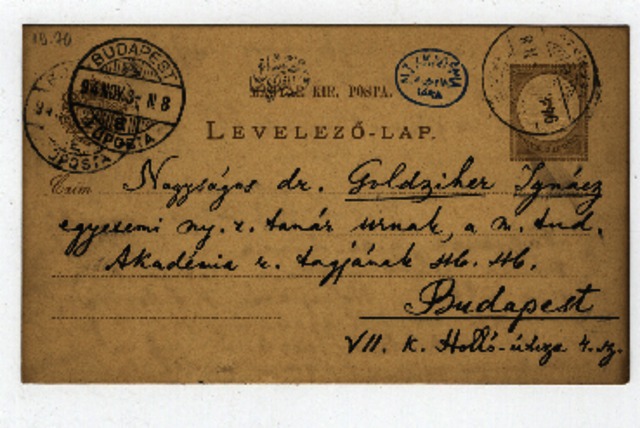 BUDAPEST
94 NOV. 9 N 8
FŐPOSTA
MAGYAR KIR. POSTA.
LEVELEZŐ-LAP.
Czim Nagyságos dr. Goldziher Ignácz
egyetemi ny. r. tanár urnak, a m. tud.
Akadémia r. tagjának stb. stb.
Budapest
VII. k. Holló-utcza 4. sz.